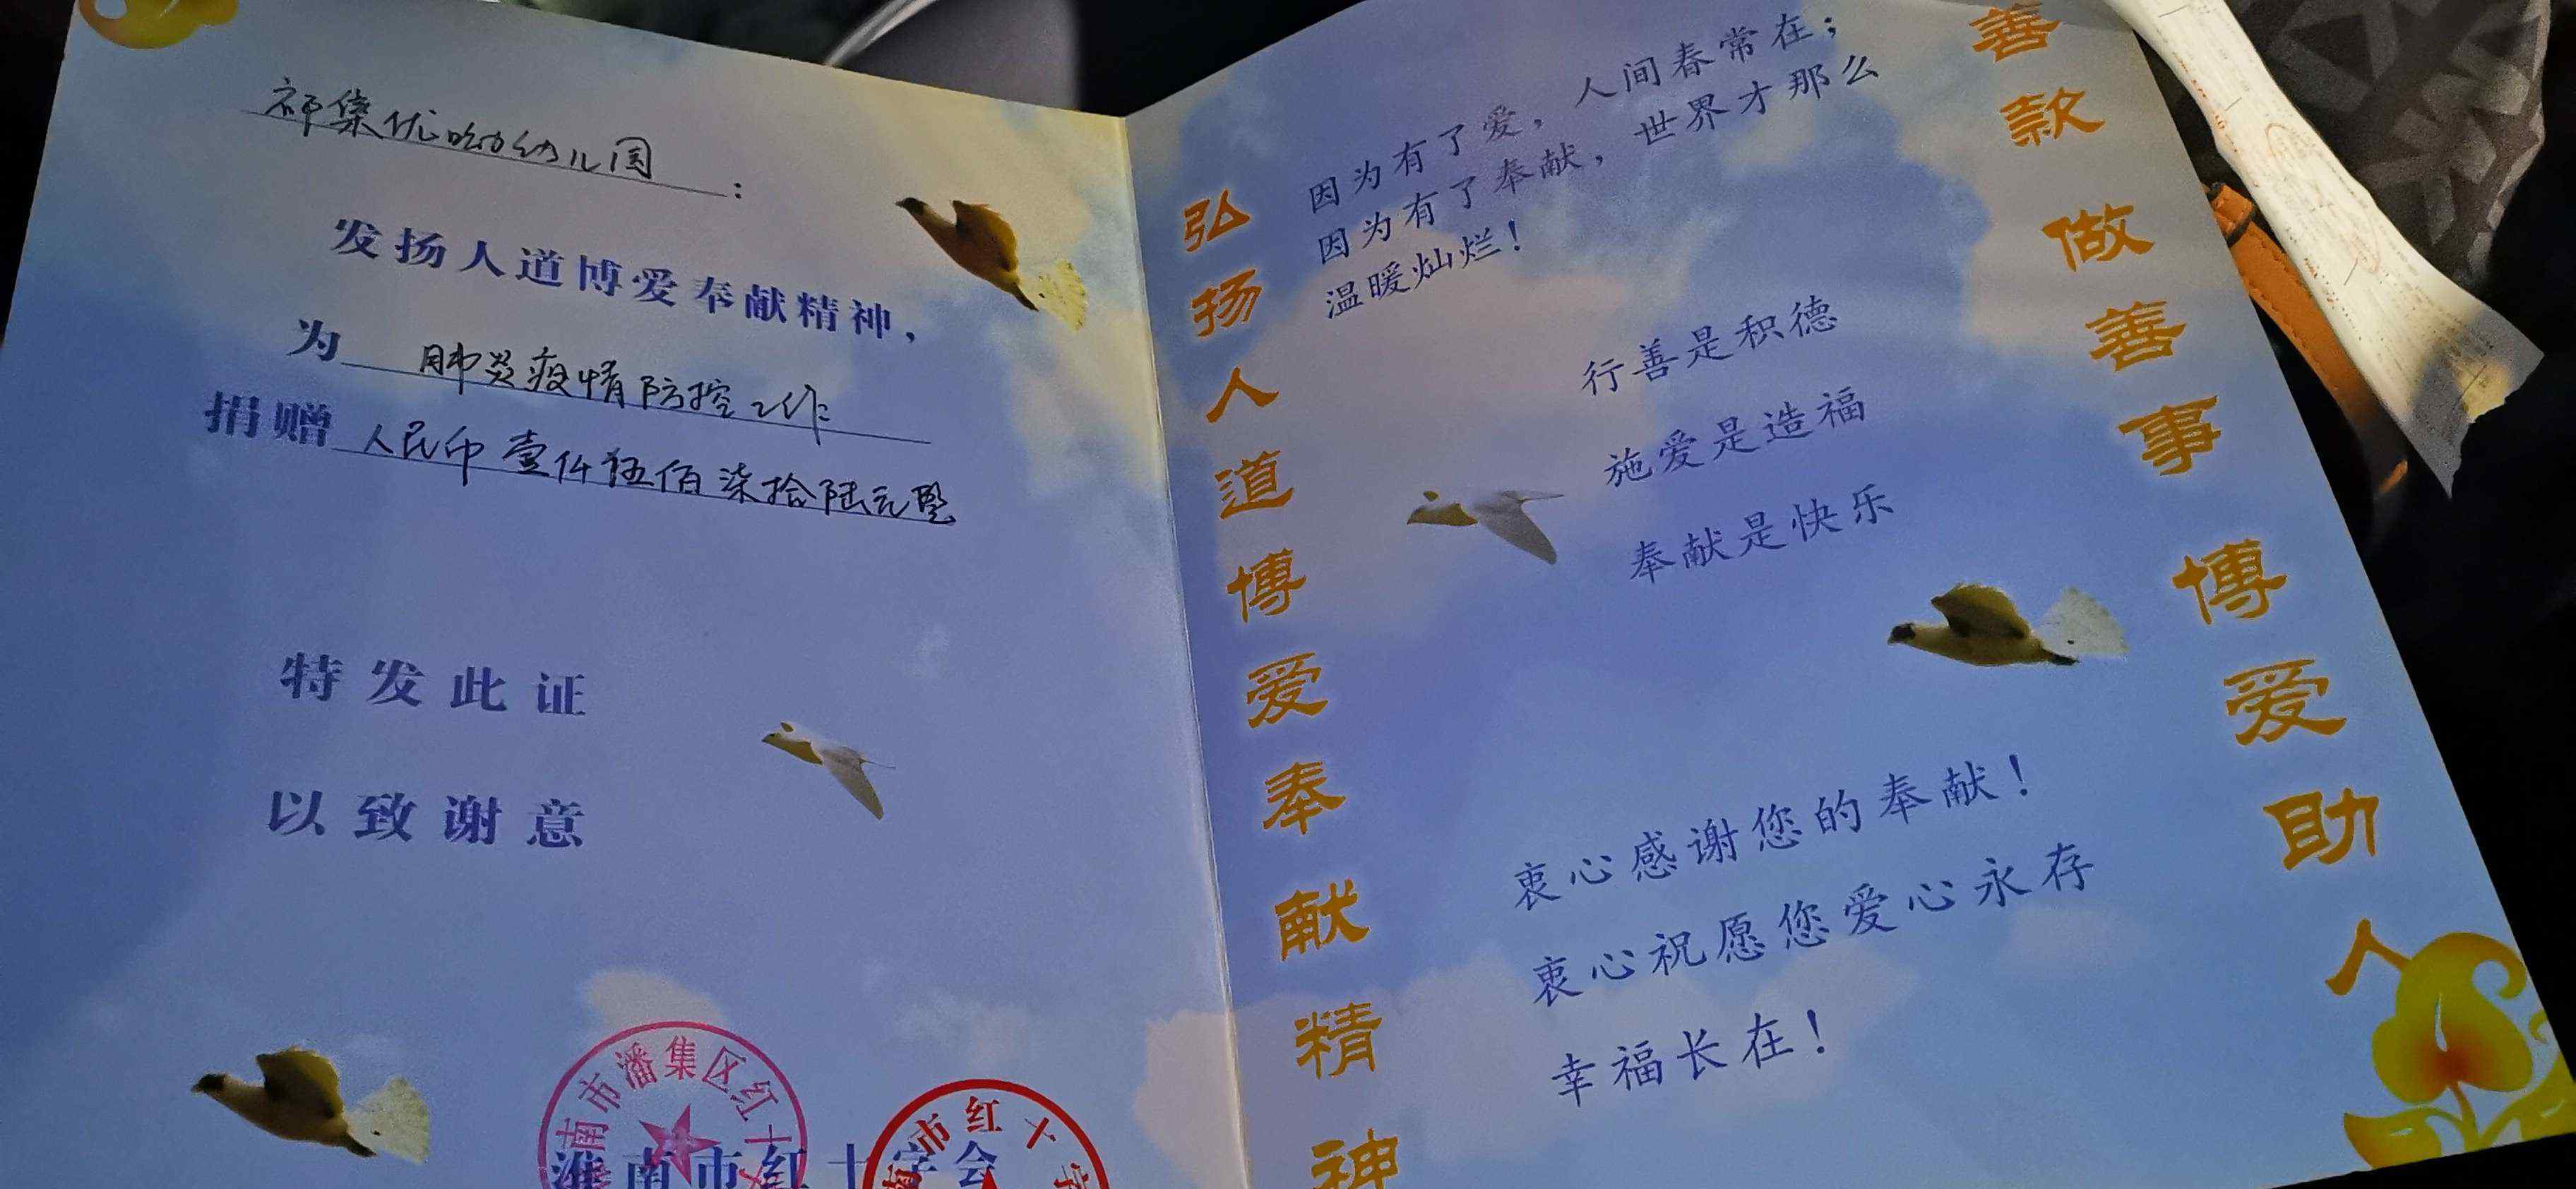 祁集优哟幼儿园：
发扬人道博爱奉献精神，
为 肺炎疫情防控工作
捐赠 人民币壹仟伍佰柒拾陆元整
特发此证
以致谢意
淮南市潘集区红十
淮南市红十字会
南市红十字
弘扬人道博爱奉献精神
因为有了爱，人间春常在；
因为有了奉献，世界才那么
温暖灿烂！
行善是积德
施爱是造福
奉献是快乐
衷心感谢您的奉献！
衷心祝愿您爱心永存
幸福长在！
善款做善事 博爱助人